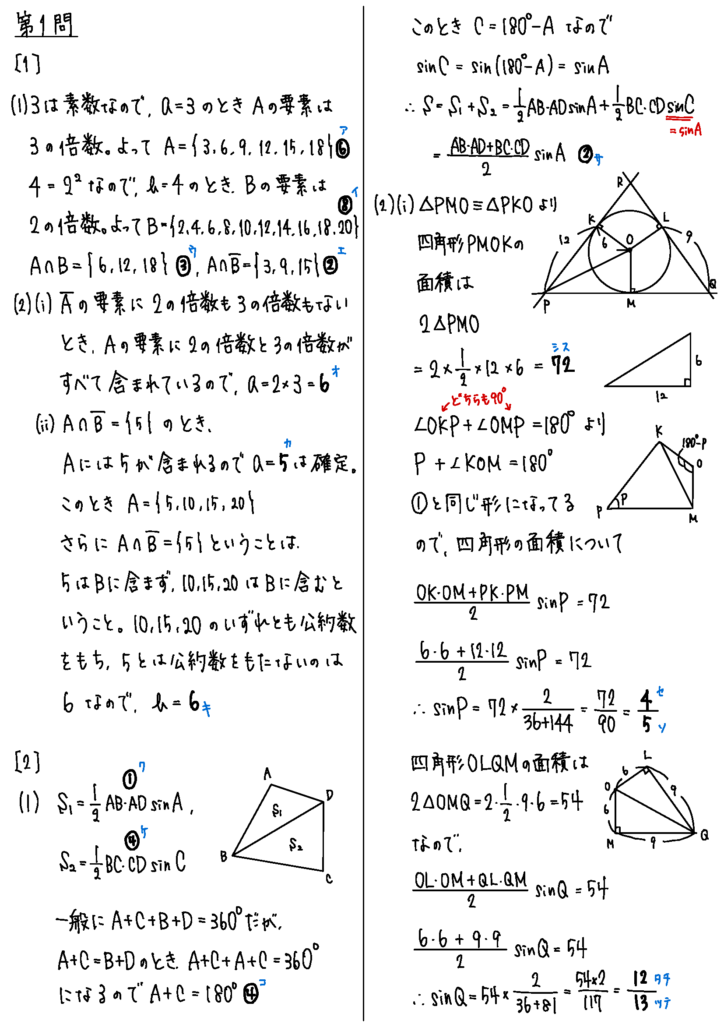 第1問
[1]
(1) 3は素数なので, a=3のとき Aの要素は
3の倍数。よって A={3,6,9,12,15,18} ⑥ ア
4=2²なので, b=4のとき, Bの要素は
2の倍数。よってB={2,4,6,8,10,12,14,16,18,20} ⑧ イ
A∩B={6,12,18} ③ ウ, A∩B̅={3,9,15} ② エ
(2)(i) A̅の要素に2の倍数も3の倍数もない
とき, Aの要素に2の倍数と3の倍数が
すべて含まれているので, a=2×3=6 オ
(ii) A∩B̅={5}のとき,
Aには5が含まれるので a=5 カ は確定。
このとき A={5,10,15,20}
さらに A∩B̅={5}ということは,
5はBに含まず, 10,15,20はBに含むと
いうこと。10,15,20のいずれとも公約数
をもち, 5とは公約数をもたないのは
6なので, b=6 キ
[2]
(1) S₁=1/2 AB·AD sinA, ① ク
S₂=1/2 BC·CD sinC ④ ケ
A
B
C
D
S₁
S₂
一般に A+C+B+D=360°だが,
A+C=B+Dのとき, A+C+A+C=360°
になるので A+C=180° ④ コ
このとき C=180°-Aなので
sinC=sin(180°-A)=sinA
∴ S=S₁+S₂=1/2 AB·AD sinA+1/2 BC·CD sinC
=sinA
=(AB·AD+BC·CD)/2 sinA ② サ
(2)(i) △PMO≡△PKOより
四角形PMOKの
面積は
2△PMO
=2×1/2×12×6=72 シス
R
K
L
O
P
M
Q
12
6
9
6
12
どちらも90°
∠OKP+∠OMP=180°より
P+∠KOM=180°
①と同じ形になってる
ので, 四角形の面積について
K
180°-P
O
P
P
M
(OK·OM+PK·PM)/2 sinP=72
(6·6+12·12)/2 sinP=72
∴ sinP=72×2/(36+144)=72/90=4/5 セ ソ
四角形OLQMの面積は
2△OMQ=2·1/2·9·6=54
なので,
L
O
M
Q
6
6
9
9
(OL·OM+QL·QM)/2 sinQ=54
(6·6+9·9)/2 sinQ=54
∴ sinQ=54×2/(36+81)=54×2/117=12/13 タチ ツテ